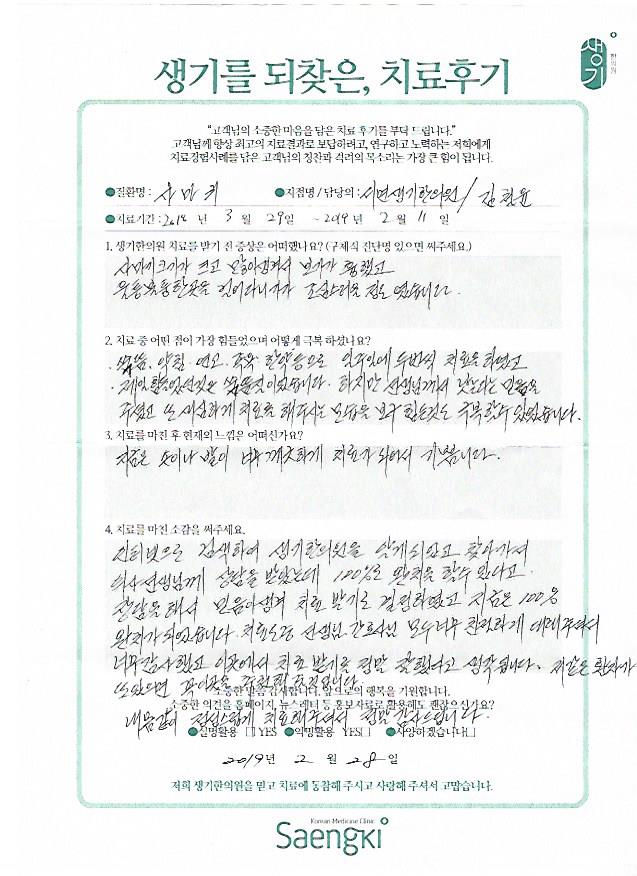 생기
한의원
생기를 되찾은, 치료후기
"고객님의 소중한 마음을 담은 치료 후기를 부탁 드립니다."
고객님께 항상 최고의 치료결과로 보답하려고, 연구하고 노력하는 저희에게
치료경험사례를 담은 고객님의 칭찬과 격려의 목소리는 가장 큰 힘이 됩니다.
●질환명 : 사마귀 ●지점명 / 담당의 : 서면생기한의원 / 김
●치료기간 : 년 3 월 29일 ~ 2019 년 2 월 11 일
1. 생기한의원 치료를 받기 전 증상은 어떠했나요? (구체적 진단명 있으면 써주세요.)
사마귀크기가 크고 많이생겨서 보기가 흉했고
조심스러운 정도 였습니다.
2. 치료 중 어떤 점이 가장 힘들었으며 어떻게 극복 하셨나요?
약침. 연고. 한약등으로 일주일에 두번씩 치료를 하였고
하지만 선생님께서 낫는다는 믿음을
주셨고 또 세심하게 치료를 해주시는 모습을 보고 힘든것도 극복할수 있었습니다.
3. 치료를 마친 후 현재의 느낌은 어떠신가요?
지금은 손이나 발이 너무 깨끗하게 치료가 되어서 기쁩니다.
4. 치료를 마친 소감을 써주세요.
인터넷으로 검색하여 생기한의원을 알게되었고 찾아가서
의사선생님께 상담을 받았는데 100%로 완치를 할수 있다고
믿음이생겨 치료 받기로 결심하였고 지금은 100%
완치가 되었습니다. 선생님 간호사님 모두너무 친절하게 대해주셔서
너무감사했고 이곳에서 치료 받기를 정말 잘했다고 생각됩니다. 저같은 환자가
또있으면 꼭이곳을 추천해
소중한 말씀 감사합니다. 앞으로의 행복을 기원합니다.
소중한 의견을 홈페이지, 뉴스레터 등 홍보자료로 활용해도 괜찮으신가요?
내몸같이 정성스럽게 치료해주셔서 정말 감사드립니다.
●실명활용 □ YES ●익명활용 YES□ ●사양하겠습니다□
2019년 2 월 28일
저희 생기한의원을 믿고 치료에 동참해 주시고 사랑해 주셔서 고맙습니다.
Korean Medicine Clinic
Saengki